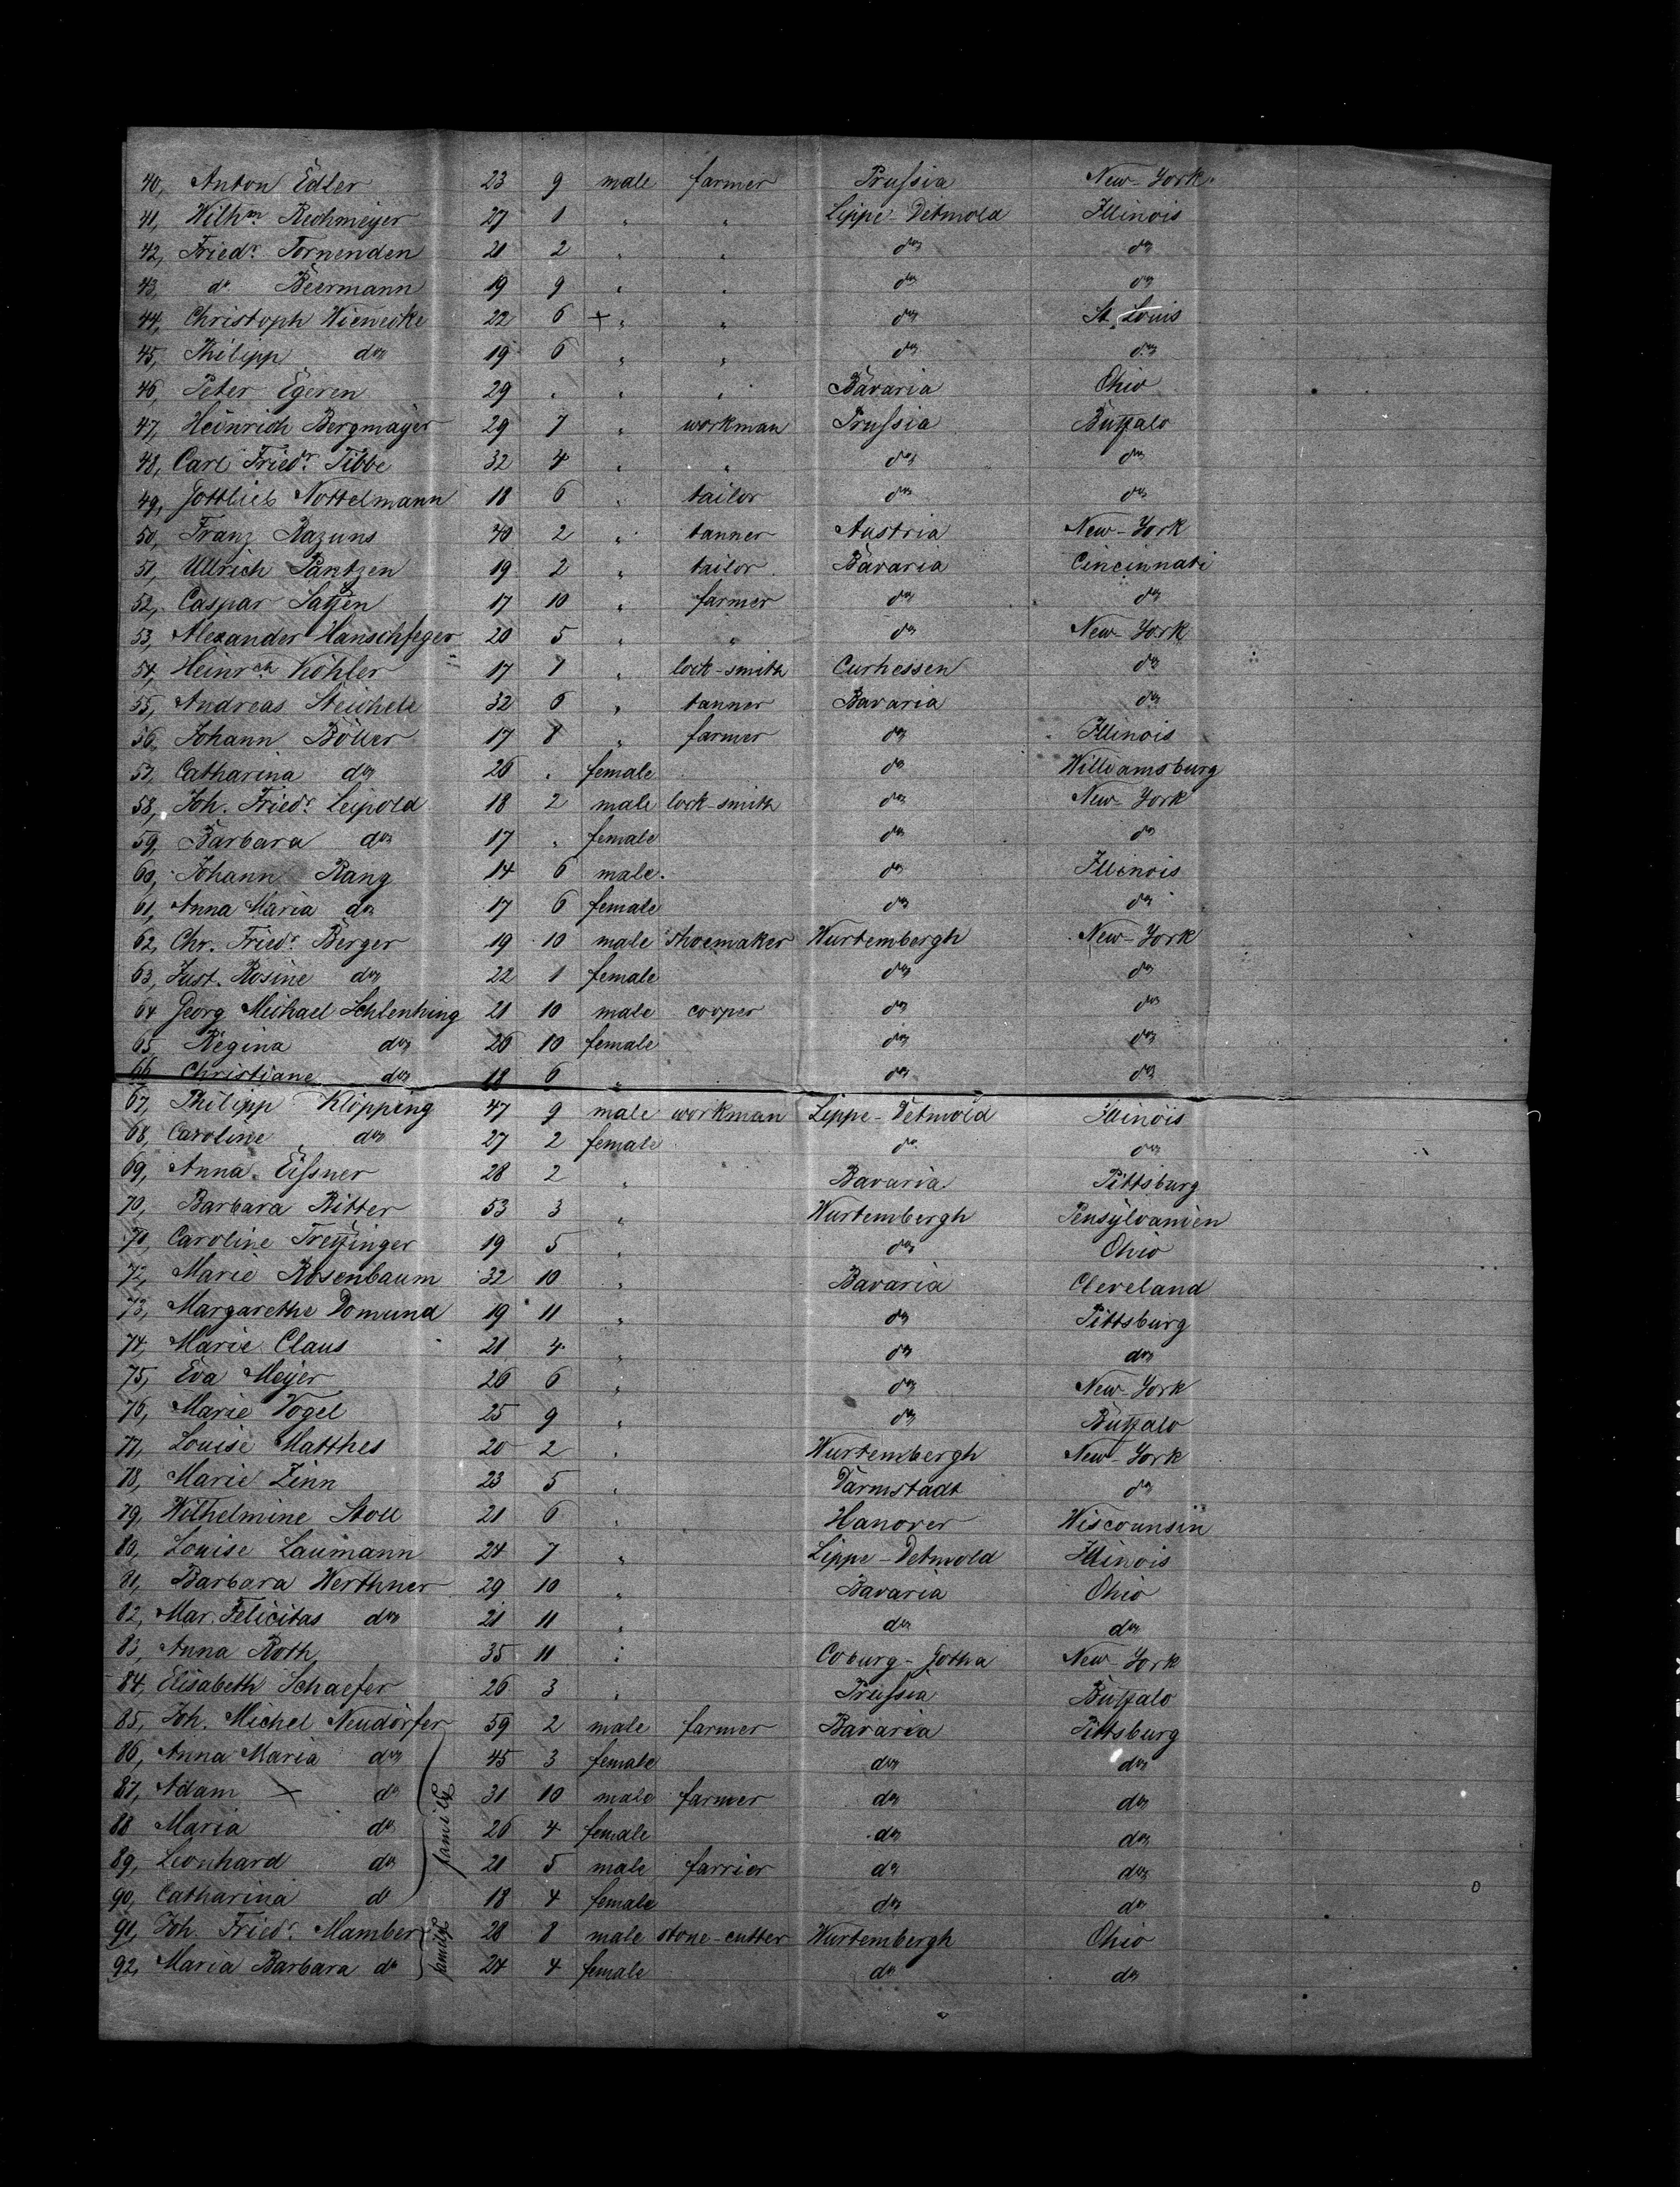 40, Anton Edler 23 9 male farmer Prussia New-York
41, Wilhm Rechmeyer 27 1 " " Lippe-Detmold Illinois
42, Friedr. Tornenden 21 2 " " do do
43, do Beermann 19 9 " " do do
44, Christoph Wienecke 22 6 + " " do St. Louis
45, Philipp do 19 6 " " do do
46, Peter Egeren 29 " " " Bavaria Ohio
47, Heinrich Bergmayer 29 7 " workman Prussia Buffalo
48, Carl Friedr. Tibbe 32 4 " " do do
49, Gottlieb Nottelmann 18 6 " tailor do do
50, Franz Razuns 40 2 " tanner Austria New-York
51, Ullrich Pantzen 19 2 " tailor Bavaria Cincinnati
52, Caspar 17 10 " farmer do do
53, Alexander Hanschfeger 20 5 " " do New-York
54, Heinrch Köhler 17 7 " lock-smith Curhessen do
55, Andreas Steichele 32 6 " tanner Bavaria do
56, Johann Böller 17 8 " farmer do Illinois
57, Catharina do 26 " female do Williamsburg
58, Joh. Friedr. Leipold 18 2 male lock-smith do New-York
59, Barbara do 17 " female do do
60, Johann Rang 14 6 male. do Illinois
61, Anna Maria do 17 6 female do do
62, Chr. Friedr. Berger 19 10 male shoemaker Wurtembergh New-York
63, Just. Rosine do 22 1 female do do
64 Georg Michael Schlenhing 21 10 male cooper do do
65, Regina do 26 10 female do do
66 Christiane do 18 6 " do do
67, Philipp Klöpping 47 9 male workman Lippe-Detmold Illinois
68, Caroline do 27 2 female do do
69, Anna Eissner 28 2 " Bavaria Pittsburg
70, Barbara Ritter 53 3 " Wurtembergh Pensylvanien
71, Caroline Treffinger 19 5 " do Ohio
72, Marie Rosenbaum 32 10 " Bavaria Cleveland
73, Margarethe Domund 19 11 " do Pittsburg
74, Marie Claus 21 4 " do do
75, Eva Meyer 26 6 " do New-York
76, Marie Vogel 25 9 " do Buffalo
77, Louise Matthes 20 2 " Wurtembergh New-York
78, Marie Zinn 23 5 " Darmstadt do
79, Wilhelmine Stoll 21 6 " Hanover Wiscounsin
80, Louise Laumann 24 7 " Lippe-Detmold Illinois
81, Barbara Werthner 29 10 " Bavaria Ohio
82, Mar. Felicitas do 21 11 " do do
83, Anna Roth 35 11 " Coburg-Gotha New-York
84, Elisabeth Schaefer 26 3 " Prussia Buffalo
85, Joh. Michel Neudörfer 59 2 male farmer Bavaria Pittsburg
86, Anna Maria do 45 3 female do do
87, Adam x do family 31 10 male farmer do do
88 Maria do 26 4 female do do
89, Leonhard do 21 5 male farrier do do
90, Catharina do 18 4 female do do
91, Joh. Friedr. Mamber family 28 8 male stone-cutter Wurtembergh Ohio
92, Maria Barbara do 24 4 female do do